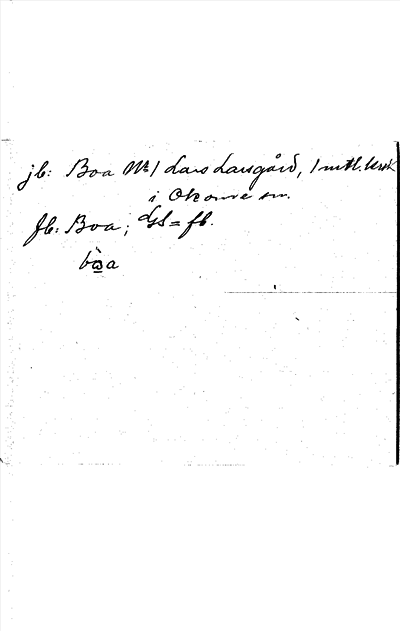 jb: Boa No 1 Lars Larsgård, 1 mtl. krsk
i Ekome sn.
fb: Boa; GS = fb.
bòa